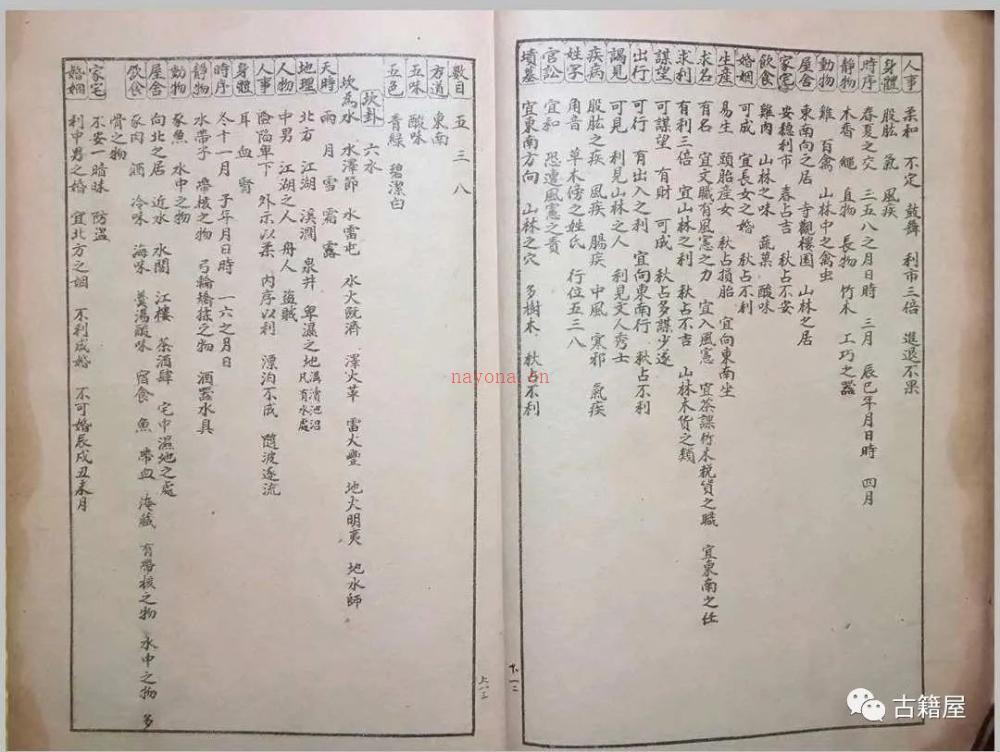 人事 柔和 不定 鼓舞 利市三倍 進退不果
身體 股肱 氣 風疾
時序 春夏之交 三五八之月日時 三月 辰巳年月日時 四月
靜物 木香 繩 直物 長物 竹木 工巧之器
動物 雞 百禽 山林中之禽虫
屋舍 東南向之居 寺觀樓園 山林之居
家宅 安穩利市 春占吉 秋占不安
飲食 雞肉 山林之味 蔬菓 酸味
婚姻 可成 宜長女之婚 秋占不利
生產 易生 頭胎產女 秋占損胎 宜向東南坐
求名 有名 宜文職有風憲之力 宜入風憲 宜茶課竹木稅貨之職 宜東南之任
求利 有利三倍 宜山林之利 秋占不吉 山林木貨之類
謀望 可謀望 有財 可成 秋占多謀少遂
出行 可行 有出入之利 宜向東南行 秋占不利
謁見 可見 利見山林之人 利見文人秀士
疾病 股肱之疾 風疾 腸疾 中風 寒邪 氣疾
姓字 角音 草木傍之姓氏 行位五三八
官訟 宜和 恐遭風憲之責
墳墓 宜東南方向 山林之穴 多樹木 秋占不利
數目 五 三 八
方道 東南
五味 酸味
五色 青綠 碧潔白
坎卦 六水
坎為水 水澤節 水雷屯 水火既濟 澤火革 雷火豐 地火明夷 地水師
天時 雨 月 雪 霜 露
地理 北方 江湖 溪澗 泉井 卑濕之地 溝瀆池沼凡有水處
人物 中男 江湖之人 舟人 盜賊
人事 險陷卑下 外示以柔 內序以利 漂泊不成 隨波逐流
身體 耳 血 腎
時序 冬十一月 子年月日時 一六之月日
靜物 水帶子 帶核之物 弓輪矯揉之物 酒器水具
動物 豕魚 水中之物
屋舍 向北之居 近水 水閣 江樓 茶酒肆 宅中濕地之處
飲食 豕肉 酒 冷味 海味 羹湯酸味 宿食 魚 帶血 淹藏 有帶核之物 水中之物 多
骨之物
家宅 不安一暗昧 防盜
婚姻 利中男之婚 宜北方之姻 不利成婚 不可婚辰戌丑未月
nayona.cn
古籍屋